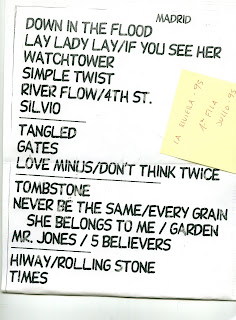 MADRID
DOWN IN THE FLOOD
LAY LADY LAY/IF YOU SEE HER
WATCHTOWER
SIMPLE TWIST
RIVER FLOW/4TH ST.
SILVIO
TANGLED
GATES
LOVE MINUS/DON'T THINK TWICE
TOMBSTONE
NEVER BE THE SAME/EVERY GRAIN
SHE BELONGS TO ME / GARDEN
MR. JONES / 5 BELIEVERS
HIWAY/ROLLING STONE
TIMES
LA RIVIERA - 95
1ª FILA
JULIO 95